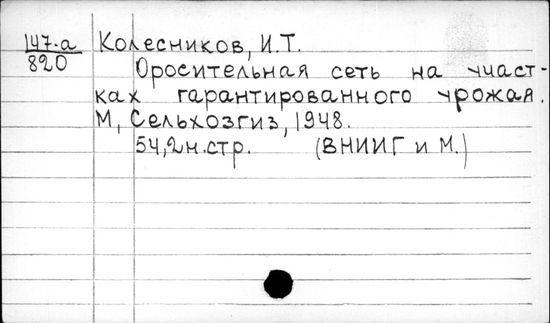 147-а Колесников, И.Т.
820
Оросительная сеть на участ-
ках гарантированного урожая.
М, Сельхозгиз, 1948.
54,2н.стр. (ВНИИГ и М.)